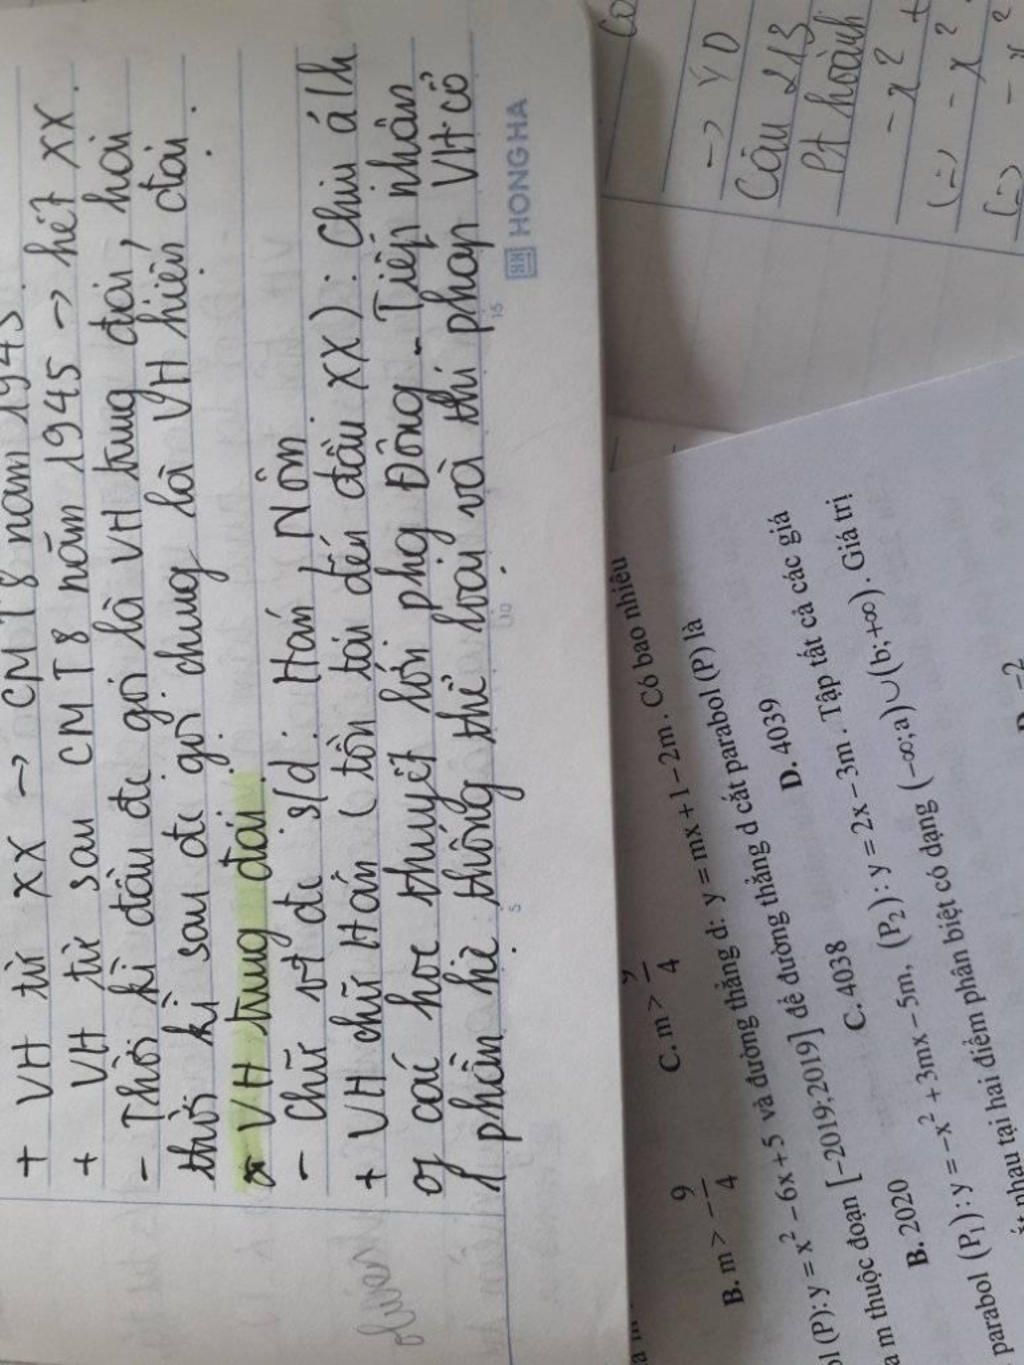 + VH từ XX → CMT8 năm 1945.
+ VH từ sau CMT8 năm 1945 → hết XX.
- Thời kì đầu đc gọi là VH trung đại, hai
thời kì sau đc gọi chung là VH hiện đại.
* VH trung đại.
- Chữ vt đc s/d: Hán, Nôm
+ VH chữ Hán (tồn tại đến đầu XX): Chịu á/h
các học thuyết lớn phg Đông - Tiếp nhận
phần hệ thống thể loại và thi pháp VH cổ
HONG HA
5
10
15
B. m > -9/4
C. m > 9/4
(P): y = x² - 6x + 5 và đường thẳng d: y = mx + 1 - 2m. Có bao nhiêu
m thuộc đoạn [-2019;2019] để đường thẳng d cắt parabol (P) là
B. 2020
C. 4038
D. 4039
parabol (P₁): y = -x² + 3mx - 5m, (P₂): y = 2x - 3m. Tập tất cả các giá
nhau tại hai điểm phân biệt có dạng (-∞;a)∪(b;+∞). Giá trị
→ VD
Câu 213
Pt hoành
- x²
(=) - x²
(=) - x²